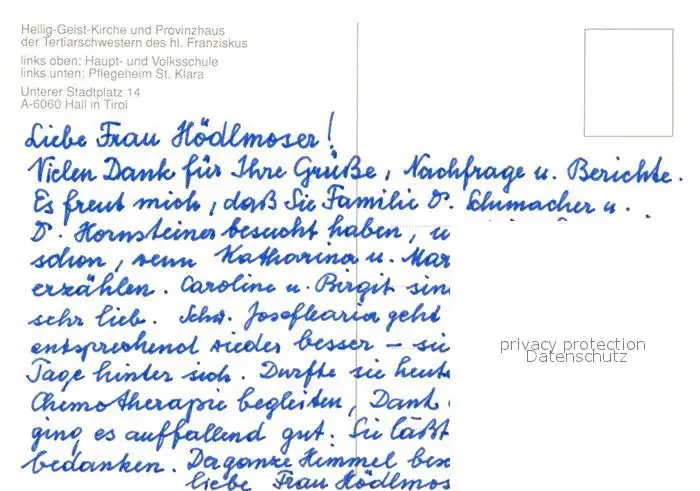 Heilig-Geist-Kirche und Provinzhaus
der Tertiarschwestern des hl. Franziskus
links oben: Haupt- und Volksschule
links unten: Pflegeheim St. Klara
Unterer Stadtplatz 14
A-6060 Hall in Tirol
Liebe Frau Hödlmoser!
Vielen Dank für Ihre Grüße, Nachfrage u. Berichte.
Es freut mich, daß Sie Familie D. Schumacher u.
D. Hornsteiner besucht haben, u
schon, wenn Katharina u. Mar
erzählen. Caroline u. Birgit sin
sehr lieb. Schw. Josefkaria geht
entsprechend wieder besser – sie
Tage hinter sich. Durfte sie heute
Chemotherapie begleiten, Dank
ging es auffallend gut. Sie läßt
bedanken. Da ganze Himmel bes
liebe Frau Hödlmos
privacy protection
Datenschutz